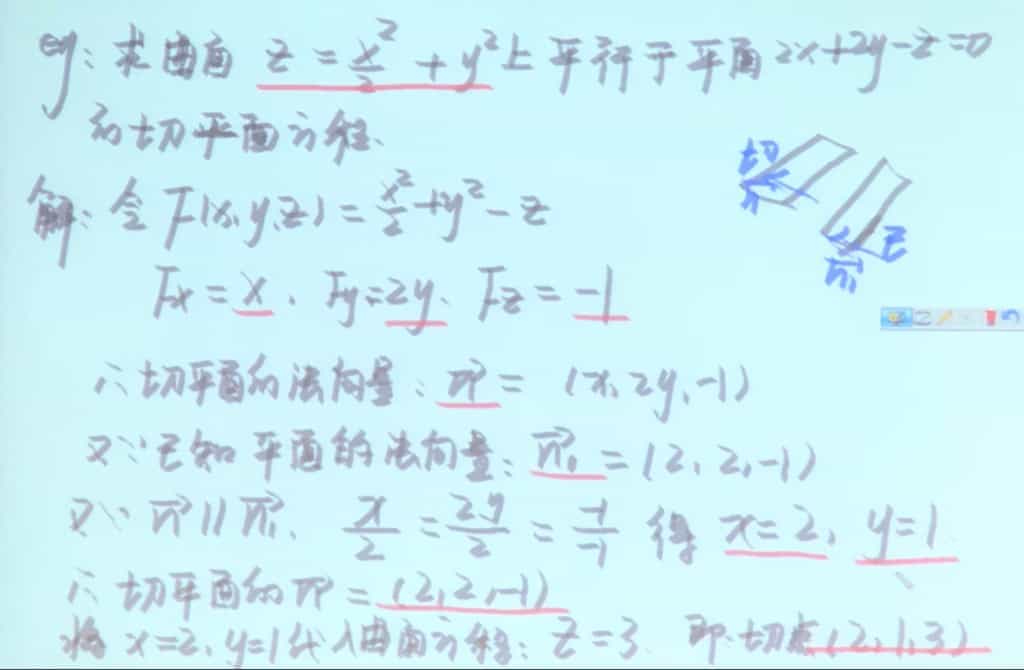 eg: 求曲面 z = x²/2 + y² 上平行于平面 2x+2y-z=0
的切平面方程.
切 n
已 n₁
解: 令 F(x,y,z) = x²/2 + y² - z
Fx = x, Fy = 2y, Fz = -1
∴ 切平面的法向量: n⃗ = (x, 2y, -1)
又∵ 已知平面的法向量: n⃗₁ = (2, 2, -1)
又∵ n⃗ // n⃗₁, x/2 = 2y/2 = -1/-1 得 x=2, y=1
∴ 切平面的 n⃗ = (2, 2, -1)
将 x=2, y=1代入曲面方程: z=3. 即:切点(2,1,3)